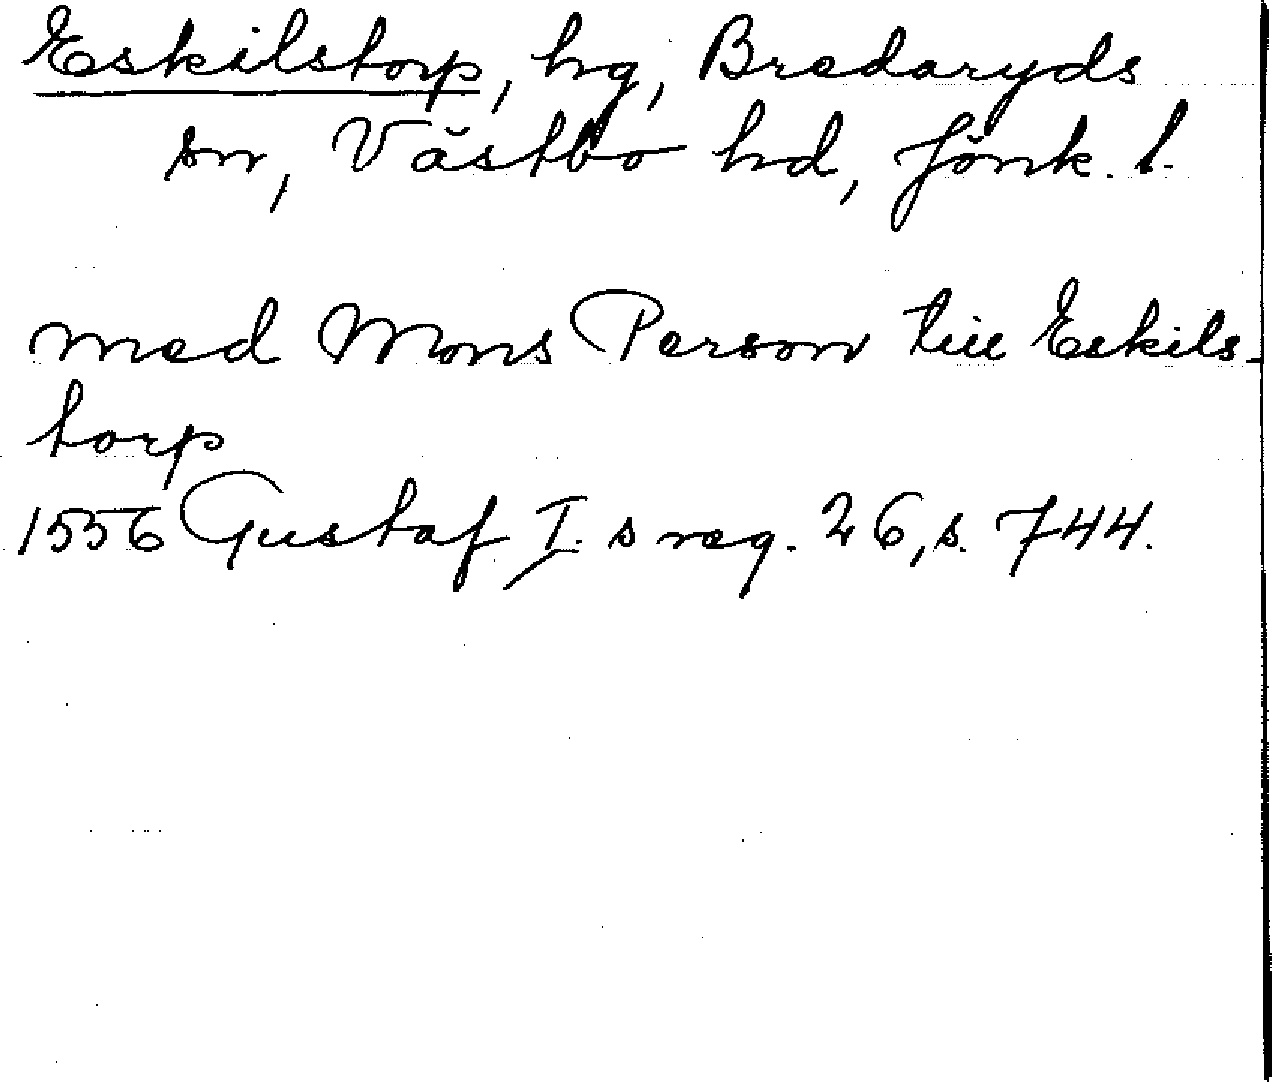 Eskilstorp, hg, Bredaryds
sn, Västbo hd, Jönk. l.
med Mons Person till Eskils-
torp
1556 Gustaf I.s reg. 26, s. 744.